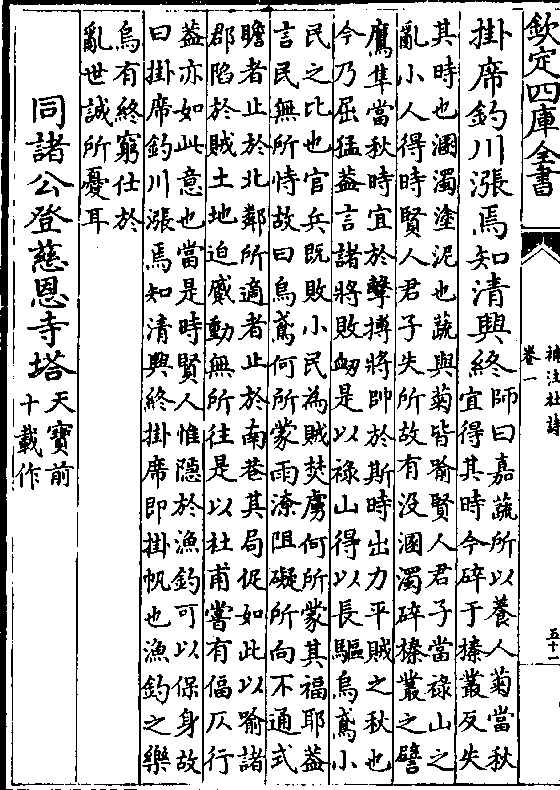 欽定四庫全書
補注杜詩
卷一
五十一
掛席釣川漲焉知清興終
師曰嘉蔬所以養人菊當秋
宜得其時今碎于榛叢反失
其時也溷濁塗泥也蔬與菊皆喻賢人君子當祿山之
亂小人得時賢人君子失所故有没溷濁碎榛叢之譬
鷹隼當秋時宜於擊搏將帥於斯時出力平賊之秋也
今乃屈猛葢言諸將敗衂是以祿山得以長驅烏鳶小
民之比也官兵既敗小民為賊焚虜何所蒙其福耶葢
言民無所恃故曰烏鳶何所蒙雨潦阻礙所向不通式
瞻者止於北鄰所適者止於南巷其局促如此以喻諸
郡陷於賊土地迫蹙動無所往是以杜甫嘗有偪仄行
葢亦如此意也當是時賢人惟隱於漁釣可以保身故
曰掛席釣川漲焉知清興終掛席即掛帆也漁釣之樂
烏有終窮仕於
亂世誠所憂耳
同諸公登慈恩寺塔
天寶前
十載作